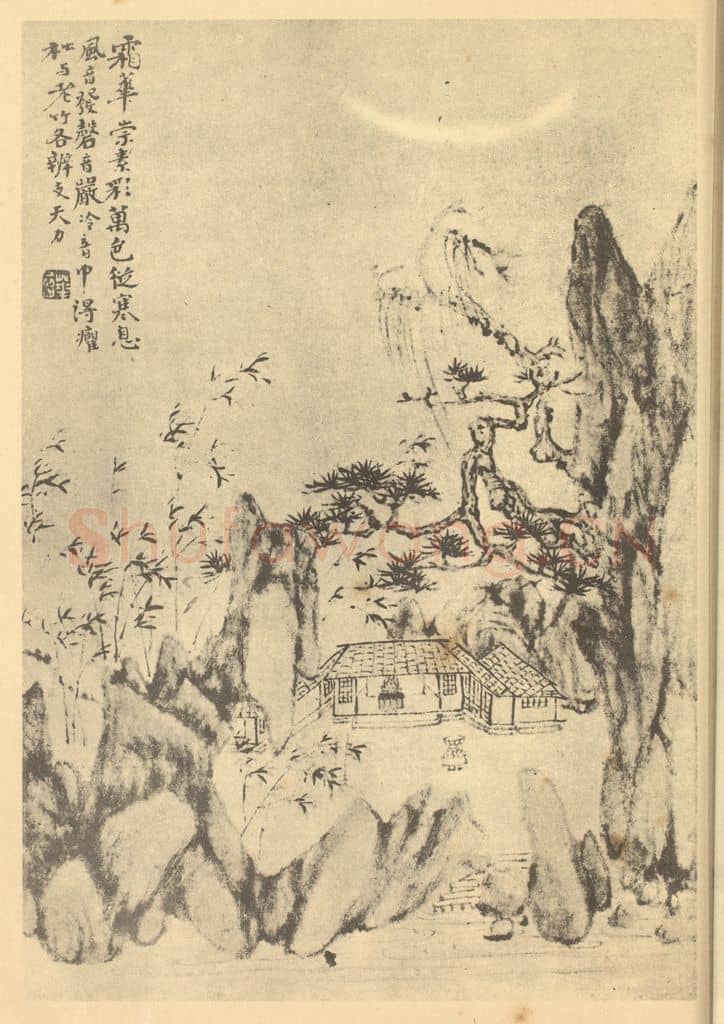 霜華崇素彩萬色從寒息
風音發磬音嚴冷音中得癯
松与老竹各辦支天力
Shufawang.CN